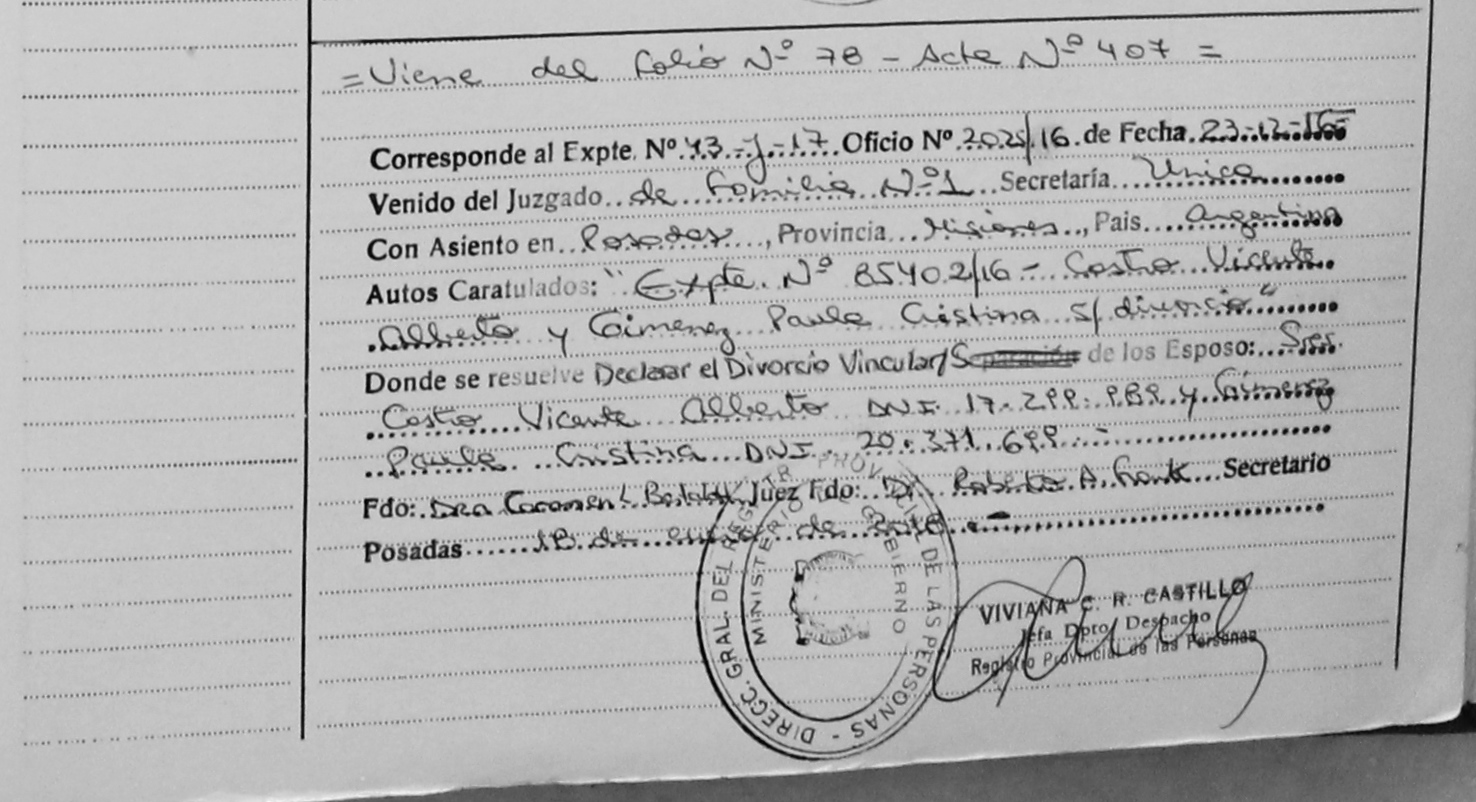 = Viene del folio Nº 78 - Acta Nº 407 =
Corresponde al Expte. Nº 43-J-17 Oficio Nº 2025/16 de Fecha 23-12-16
Venido del Juzgado de Familia Nº 1 Secretaría Unica
Con Asiento en Posadas, Provincia Misiones, Pais Argentina
Autos Caratulados: "Expte. Nº 85402/16 - Castro Vicente
Alberto y Gimenez Paula Cristina S/ divorcio"
Donde se resuelve Declarar el Divorcio Vincular/Separación de los Esposo: Sres.
Castro Vicente Alberto DNI. 17.299.989 y Gimenez
Paula Cristina DNI. 20.371.699.-
Fdo: Dra Juez Fdo: Dr. Roberto A. Frank Secretario
Posadas 18 de enero de
DIRECC. GRAL. DEL REGISTR. PROVINCIAL DE LAS PERSONAS
MINISTERIO DE GOBIERNO
VIVIANA C. R. CASTILLO
Jefa Dpto. Despacho
Registro Provincial de las Personas